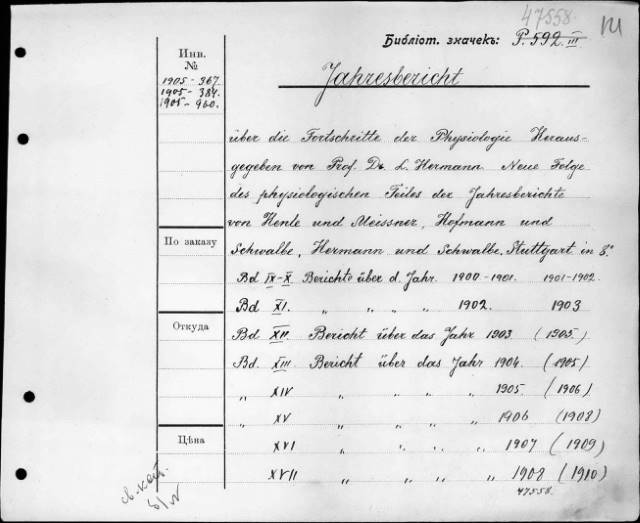 47558.
III
Библіот. значекъ: P. 592. III
Инв.
№
1905 - 367.
1905 - 384.
1905 - 960.
Jahresbericht
über die Fortschritte der Physiologie Heraus-
gegeben von Prof. Dr. L. Hermann. Neue Folge
des physiologischen Teiles der Jahresberichte
von Henle und Meissner, Hofmann und
По заказу
Schwalbe, Hermann und Schwalbe. Stuttgart in 8.°
Bd IX-X Berichte über d. Jahr. 1900-1901. 1901-1902.
Bd XI. „ „ „ „ 1902. 1903
Откуда
Bd XII Bericht über das Jahr 1903 (1905)
Bd. XIII Bericht über das Jahr 1904. (1905)
„ XIV „ „ „ „ 1905 (1906)
„ XV „ „ „ „ 1906 (1908)
Цѣна
XVI „ „ „ „ 1907 (1909)
XVII „ „ „ „ 1908 (1910)
47558.